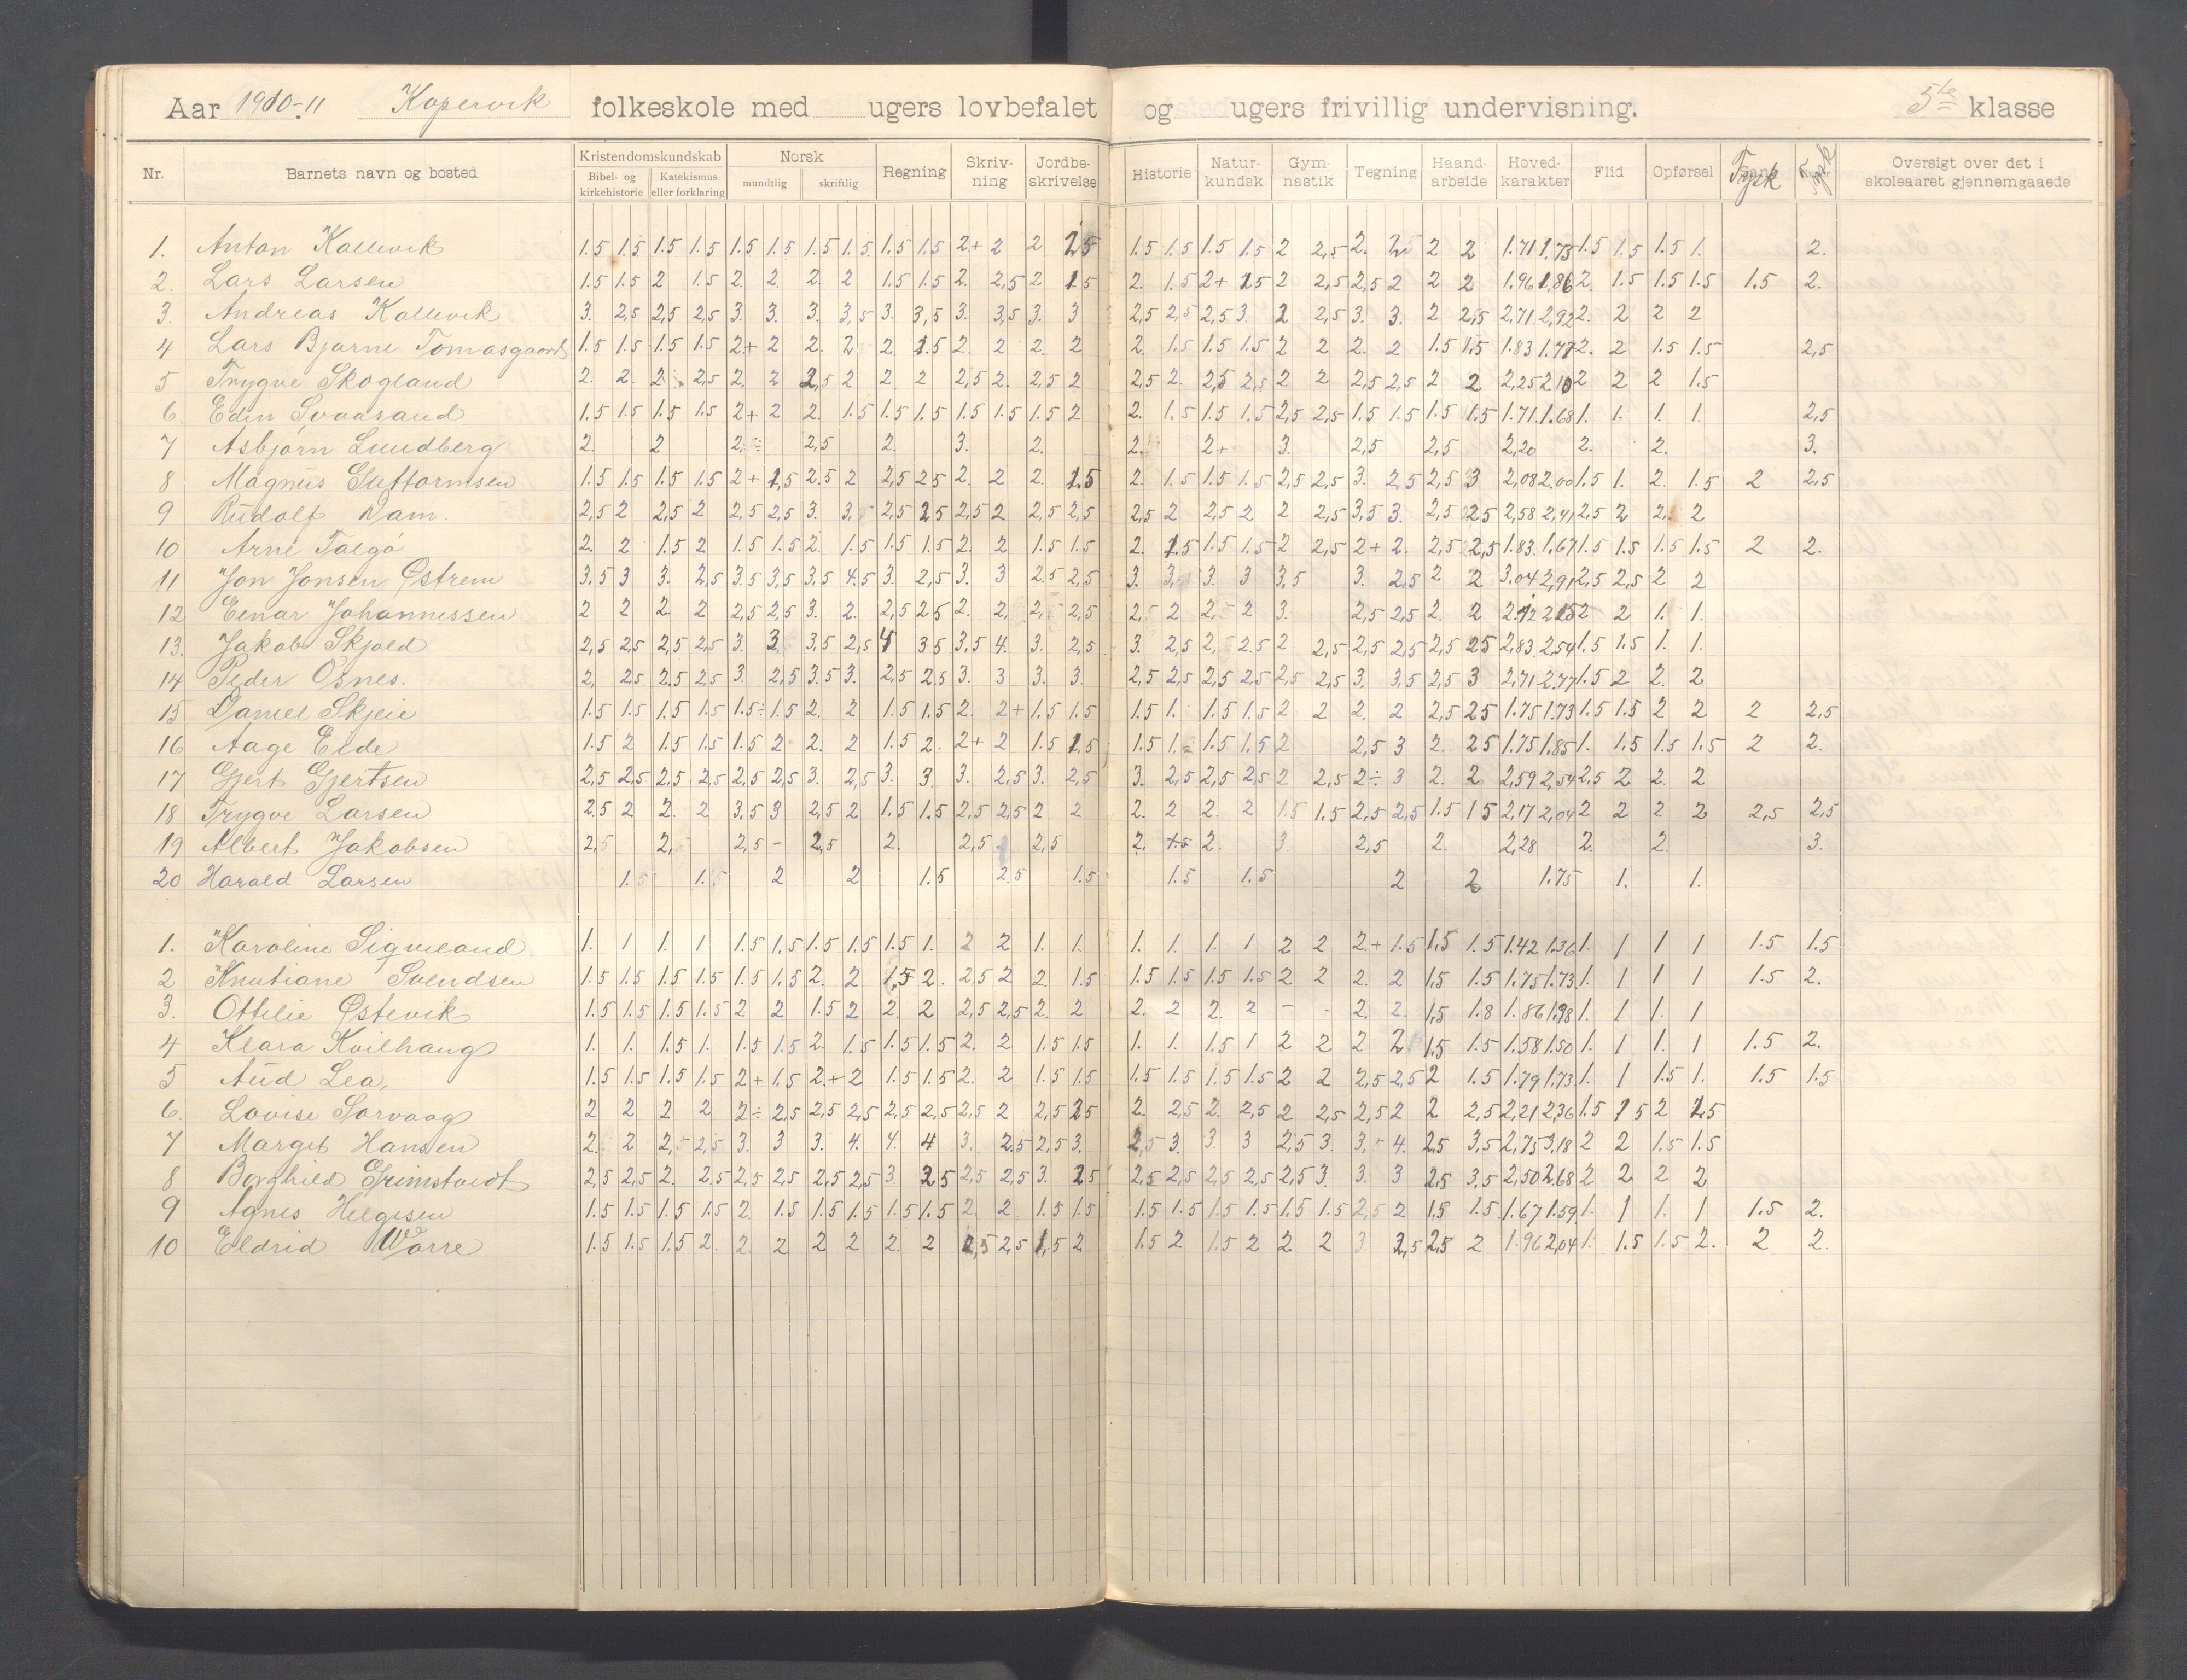 Aar 1910-11 Kopervik folkeskole med ugers lovbefalet og ugers frivillig undervisning. 5te klasse
Nr. Barnets navn og bosted Kristendomskundskab Bibel- og kirkehistorie Katekismus eller forklaring Norsk mundtlig skriftlig Regning Skriv-ning Jordbe-skrivelse Historie Natur-kundsk Gym-nastik Tegning Haand-arbeide Hoved-karakter Flid Opførsel Tysk Tysk Oversigt over det i skoleaaret gjennemgaaede
1. Anton Kallevik 1.5 1.5 1.5 1.5 1.5 1.5 1.5 1.5 1.5 1.5 2+ 2 2 2,5 1.5 1.5 1.5 1.5 2 2,5 2. 2 2 1.71 1.73 1.5 1.5 1.5 1. 2.
2. Lars Larsen 1.5 1.5 2 1.5 2. 2. 2. 2 1.5 1.5 2. 2,5 2 1.5 2. 1.5 2+ 1.5 2 2,5 2,5 2 2 2 1.96 1.86 2. 1.5 1.5 1.5 1.5 2.
3. Andreas Kallevik 3. 2,5 2,5 2,5 3. 3. 3. 3,5 3. 3,5 3. 3,5 3. 3 2,5 2,5 2,5 3. 2 2,5 3. 3. 2 2,5 2,71 2,92 2. 2 2 2
4 Lars Bjarne Tomasgaard 1.5 1.5 1.5 1.5 2+ 2 2. 2 2. 1.5 2. 2 2. 2 2. 1.5 1.5 1.5 2 2 2. 2 1.5 1.5 1.83 1.77 2. 2 1.5 1.5 2,5
5 Trygve Skogland 2. 2. 2 2,5 2. 2 2,5 2 2 2 2,5 2. 2,5 2 2,5 2. 2,5 2,5 2 2 2,5 2,5 2 2 2,25 2,10 2 2 2 1.5
6 Edin Svaasand 1.5 1.5 1.5 1.5 2+ 2 2. 1.5 1.5 1.5 1.5 1.5 1.5 2 2. 1.5 1.5 1.5 2,5 2,5 1.5 1.5 1.5 1.5 1.71 1.68 1. 1. 1. 1. 2,5
7 Asbjørn Lundberg 2. 2 2÷ 2,5 2. 3. 2. 2. 2+ 3. 2,5 2,5 2,20 2. 2. 3.
8 Magnus Guttormsen 1.5 1.5 1.5 1.5 2+ 1,5 2.5 2 2,5 2,5 2. 2 2. 1.5 2. 1.5 1.5 1.5 2,5 2,5 3. 2,5 2,5 3 2,08 2.00 1.5 1. 2. 1.5 2 2,5
9 Rudolf Dam. 2,5 2 2,5 2 2,5 2,5 3. 3, 2,5 2,5 2,5 2 2,5 2,5 2,5 2 2,5 2 2 2,5 3,5 3. 2,5 2,5 2,58 2,41 2,5 2 2. 2
10 Arne Talgø 2. 2 1.5 2 1.5 1.5 2. 1.5 1.5 1.5 2. 2 1.5 1.5 2. 1.5 1.5 1.5 2 2,5 2+ 2. 2,5 2,5 1.83 1.67 1.5 1.5 1.5 1.5 2 2.
11 Jon Jonsen Østrem 3.5 3 3. 2,5 3.5 3,5 3,5 4.5 3. 2,5 3. 3 2.5 2,5 3. 3, 3. 3 3,5 3. 2,5 2 2 3.04 2,91 2,5 2,5 2 2
12 Einar Johannessen 2 2 2. 2 2,5 2,5 3. 2. 2,5 2,5 2. 2, 2, 2,5 2, 2 2, 2 3. 2,5 2,5 2. 2 2 2 1. 1.
13. Jakob Skjold 2,5 2,5 2,5 2,5 3. 3 3,5 2,5 4 3,5 3,5 4. 3. 2,5 3. 2,5 2, 2.5 2 2,5 2,5 2,5 2,5 2,5 2,83 2,54 1.5 1.5 1. 1.
14 Peder Osnes. 2, 2,5 2.5 2,5 3. 2,5 3.5 3. 2,5 2.5 3. 3 3. 3. 2,5 2,5 2,5 2,5 2,5 2,5 3. 3,5 2,5 3 2,71 2.77 1.5 2 2. 2
15 Daniel Skjeie 1.5 1.5 1.5 1.5 1.5÷ 1.5 2. 2 1.5 1.5 2. 2+ 1.5 1.5 1.5 1. 1.5 1.5 2 2 2. 2 2,5 2,5 1.75 1.73 1.5 1.5 2 2 2 2,5
16 Aage Eide 1.5 2 1.5 1.5 1.5 2 2. 2 1.5 2. 2+ 2 1.5 1.5 1.5 1. 1.5 1.5 2 2,5 3 2. 2,5 1.75 1.85 1. 1.5 1.5 1.5 2 2.
17 Gjert Gjertsen 2,5 2,5 2,5 2,5 2,5 2,5 3. 2,5 3. 3. 3. 2,5 3. 2,5 3. 2,5 2,5 2,5 2 2,5 2÷ 3 2. 2 2,59 2,54 2,5 2 2. 2
18 Trygve Larsen 2.5 2 2. 2 3,5 3 2,5 2 1.5 1.5 2,5 2,5 2 2 2. 2 2. 2 1.5 1.5 2,5 2,5 1.5 1.5 2,17 2,04 2 2 2 2 2,5 2,5
19 Albert Jakobsen 2,5 2, 2,5 - 2,5 2. 2,5 2,5 2. 2. 3. 2,5 2. 2,28 2. 2. 3.
20 Harald Larsen 1.5 1.5 2 2 1.5 2.5 1.5 1.5 1.5 2 2 1.75 1. 1.
1. Karoline Sigveland 1. 1 1. 1 1.5 1.5 1.5 1.5 1.5 1. 2 2 1. 1. 1. 1. 1. 1 2 2 2+ 1.5 1,5 1.5 1.42 1.36 1. 1 1 1 1.5 1.5
2 Knutiane Svendsen 1.5 1.5 1.5 1.5 1.5 1.5 2. 2 1.5 2. 2,5 2 2. 1.5 1.5 1.5 1.5 1.5 2 2 2. 2 1,5 1.5 1.75 1.73 1. 1 1 1 1.5 2.
3. Ottilie Østevik 1.5 1.5 1.5 1.5 2 2 1.5 2 2. 2 2,5 2,5 2. 2 2. 2 2. 2 - - 2. 2. 1,5 1.8 1.86 1.98 1. 1 1. 1
4 Klara Kvilhaug 1. 1. 1.5 1. 1.5 1.5 2. 1.5 1.5 1.5 2. 2 1.5 1.5 1. 1. 1.5 1 2 2 2 2 1,5 1.5 1.58 1.50 1. 1 1. 1 1.5 2.
5 Aud Lea, 1.5 1.5 1.5 1.5 2+ 1.5 2+ 2 1.5 1.5 2. 2 1.5 1.5 1.5 1.5 1.5 1.5 2 2 2,5 2,5 2 1.5 1.79 1.73 1. 1 1.5 1. 1.5 1.5
6. Lovise Sørvaag 2 2 2 2 2÷ 2,5 2,5 2,5 2,5 2,5 2,5 2 2,5 2,5 2. 2,5 2. 2,5 2 2,5 2,5 2 2 2,5 2,21 2,36 1.5 1.5 2 1,5
7 Margit Hansen 2. 2 2,5 2,5 3. 3 3. 4. 4. 4 3. 2.5 2,5 3. 2,5 3. 3 3 2,5 3. 3, 4. 2,5 3,5 2,75 3,18 2 2 1.5 1.5
8 Borghild Grimstvedt 2,5 2,5 2. 2.5 2,5 2,5 2,5 2,5 3. 2,5 2,5 2,5 3. 2,5 2,5 2,5 2,5 2,5 2,5 3 3. 3 2,5 3,5 2,50 2,68 2 2 2 2
9 Agnes Helgesen 1.5 1.5 1.5 1.5 2. 1.5 1.5 1.5 1.5 1.5 2. 2 1.5 1.5 1.5 1.5 1.5 1.5 1.5 1.5 2,5 2 1,5 1.5 1.67 1.59 1. 1 1. 1 1.5 2.
10 Eldrid Worre 1.5 1.5 1.5 2. 2. 2 2 2 2. 2 2,5 2,5 1,5 2 1.5 2 1.5 2 2 2 3 2,5 2,5 2 1.96 2,04 1. 1.5 1.5 2. 2 2.